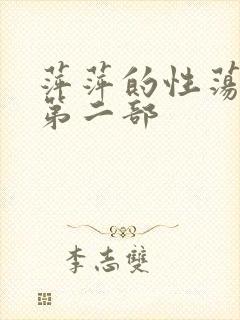 萍萍的性蕩
第二部
李志雙